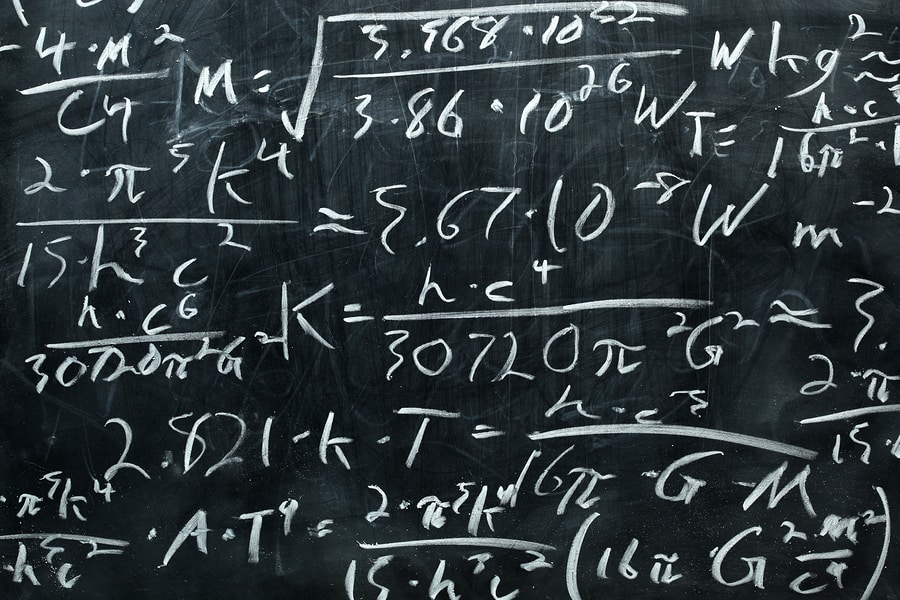 4·M² / C4 M = √(3.568·10³² / 3.86·10²⁶ W) W kg² ≈
T = h·c³ / 16π²·
2·π⁵k⁴ / 15·h³c² ≈ 5.67·10⁻⁸ W m⁻²
h·c⁶ / 30720π²G² K = h·c⁴ / 30720π²G² ≈ 3.
2.821·k·T = h·c³ / 16π·G·M
2·π / 15·
π⁵k⁴ / h³c² ·A·T⁴ = 2·π⁵k⁴ / 15·h³c² (16π·G²·M² / c⁴)